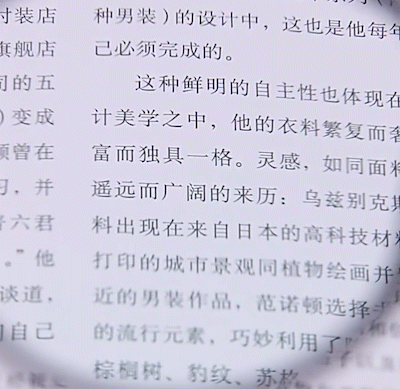 时装店
旗舰店
司的五
）变成
顿曾在
习，并
六君
。”他
谈道，
自己
种男装）的设计中，这也是他每年
己必须完成的。
这种鲜明的自主性也体现在
计美学之中，他的衣料繁复而奢
富而独具一格。灵感，如同面料
遥远而广阔的来历：乌兹别克斯
料出现在来自日本的高科技材料
打印的城市景观同植物绘画并
近的男装作品，范诺顿选择
的流行元素，巧妙利用了
棕榈树、豹纹、苏格